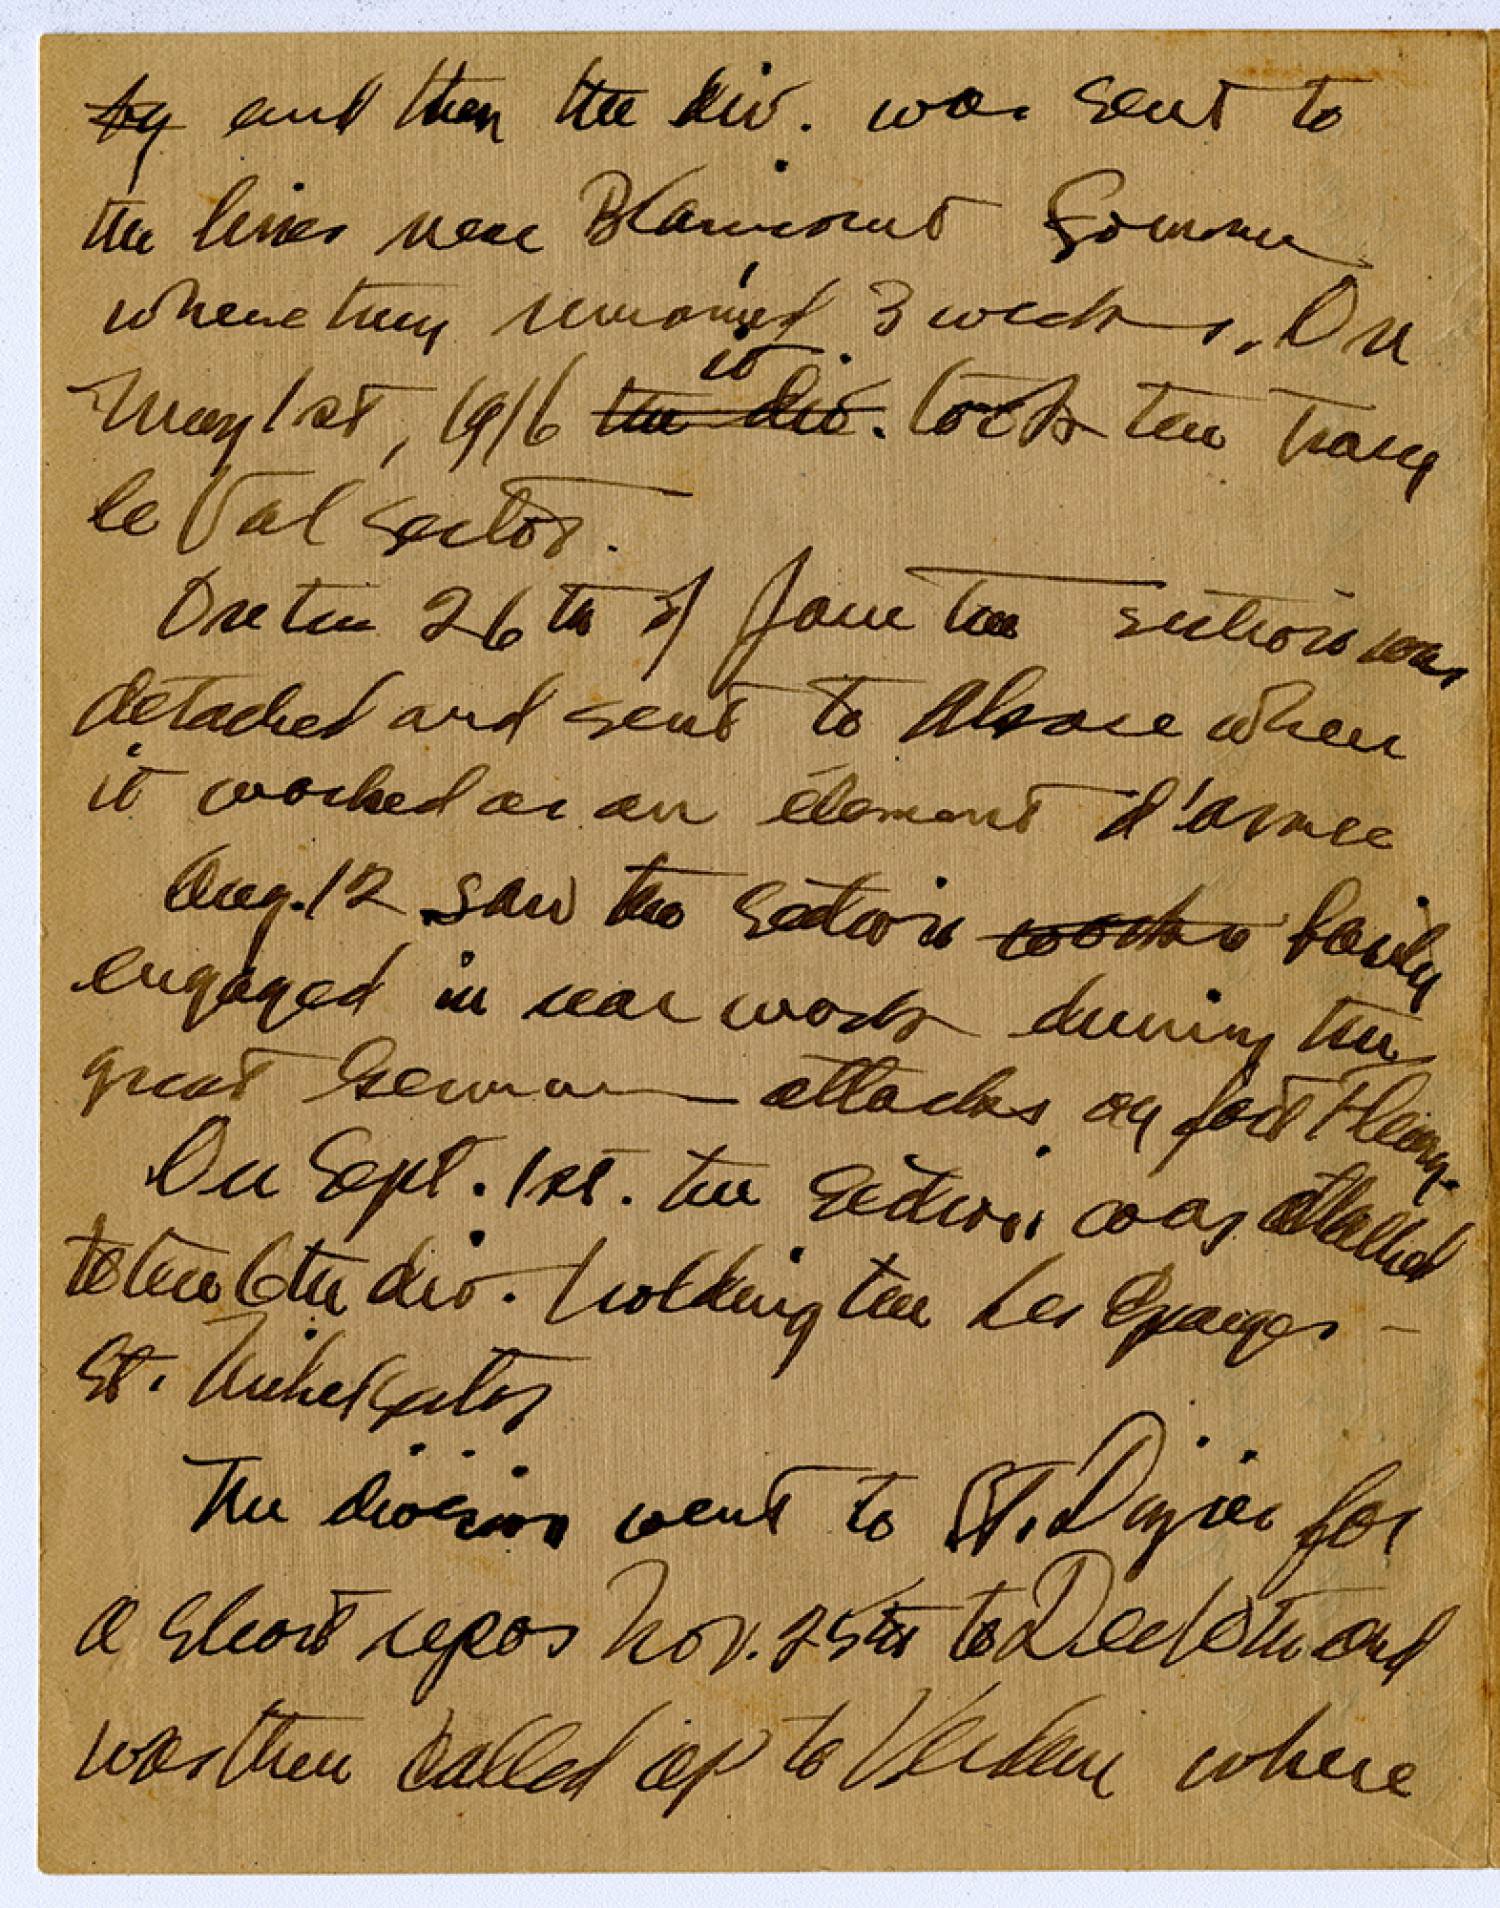 by and then the div. was sent to
the lines near Blaincourt Somme
where they remained 3 weeks. On
May 1st, 1916 the div. it took the Tracy
le Val sector.
On the 26th of June the section was
detached and sent to Alsace where
it worked as an élément d'armée
Aug. 12 saw the section working fairly
engaged in rear work during the
great German attacks on fort Fleury.
On Sept. 1st. the section was attached
to the 6th div. holding the Les Eparges –
St. Mihiel sector
The division went to St. Dizier for
a short repos Nov. 25th to Dec 10th and
was then called up to Verdun where